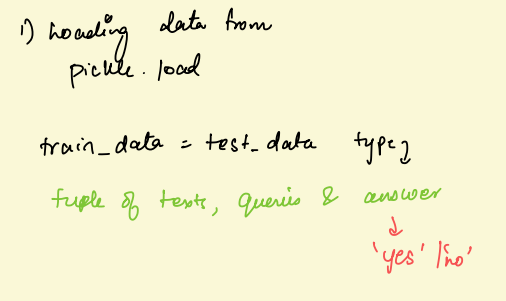 1) Loading data from
pickle.load
train_data = test_data type
tuple of texts, queries & answer
'yes' / 'no'